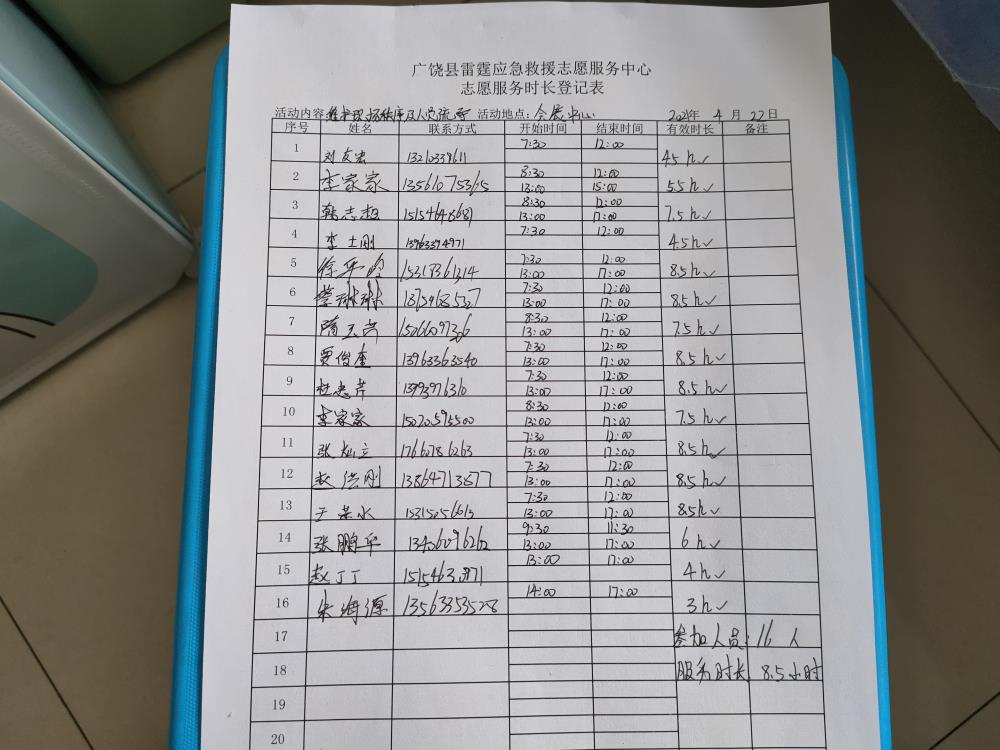 广饶县雷霆应急救援志愿服务中心
志愿服务时长登记表
活动内容:维护现场秩序及人员疏导 活动地点:会展中心 2024年 4 月 22日
序号 姓名 联系方式 开始时间 结束时间 有效时长 备注
1 刘友宏 7:30 12:00 4.5h✓
2 李家家 13561075365 8:30 12:00 5.5h✓
13:00 15:00
3 韩志超 15154648681 8:30 12:00 7.5h✓
13:00 17:00
4 李士刚 13963394971 7:30 12:00 4.5h✓
5 7:30 12:00 8.5h✓
13:00 17:00
6 7:30 12:00 8.5h✓
13:00 17:00
7 隋玉兴 15066097306 8:30 12:00 7.5h✓
13:00 17:00
8 贾俊奎 13963363540 7:30 12:00 8.5h✓
13:00 17:00
9 杜忠芹 13993976310 7:30 12:00 8.5h✓
13:00 17:00
10 李家家 15020595500 8:30 12:00 7.5h✓
13:00 17:00
11 张灿立 17660786263 7:30 12:00 8.5h✓
13:00 17:00
12 赵洪刚 13864713877 7:30 12:00 8.5h✓
13:00 17:00
13 于荣水 7:30 12:00 8.5h✓
13:00 17:00
14 张鹏华 13406096262 9:30 11:30 6h✓
13:00 17:00
15 赵丁丁 13:00 17:00 4h✓
16 朱海源 13563353528 14:00 17:00 3h✓
17 参加人员:16人
18 服务时长 8.5小时
19
20